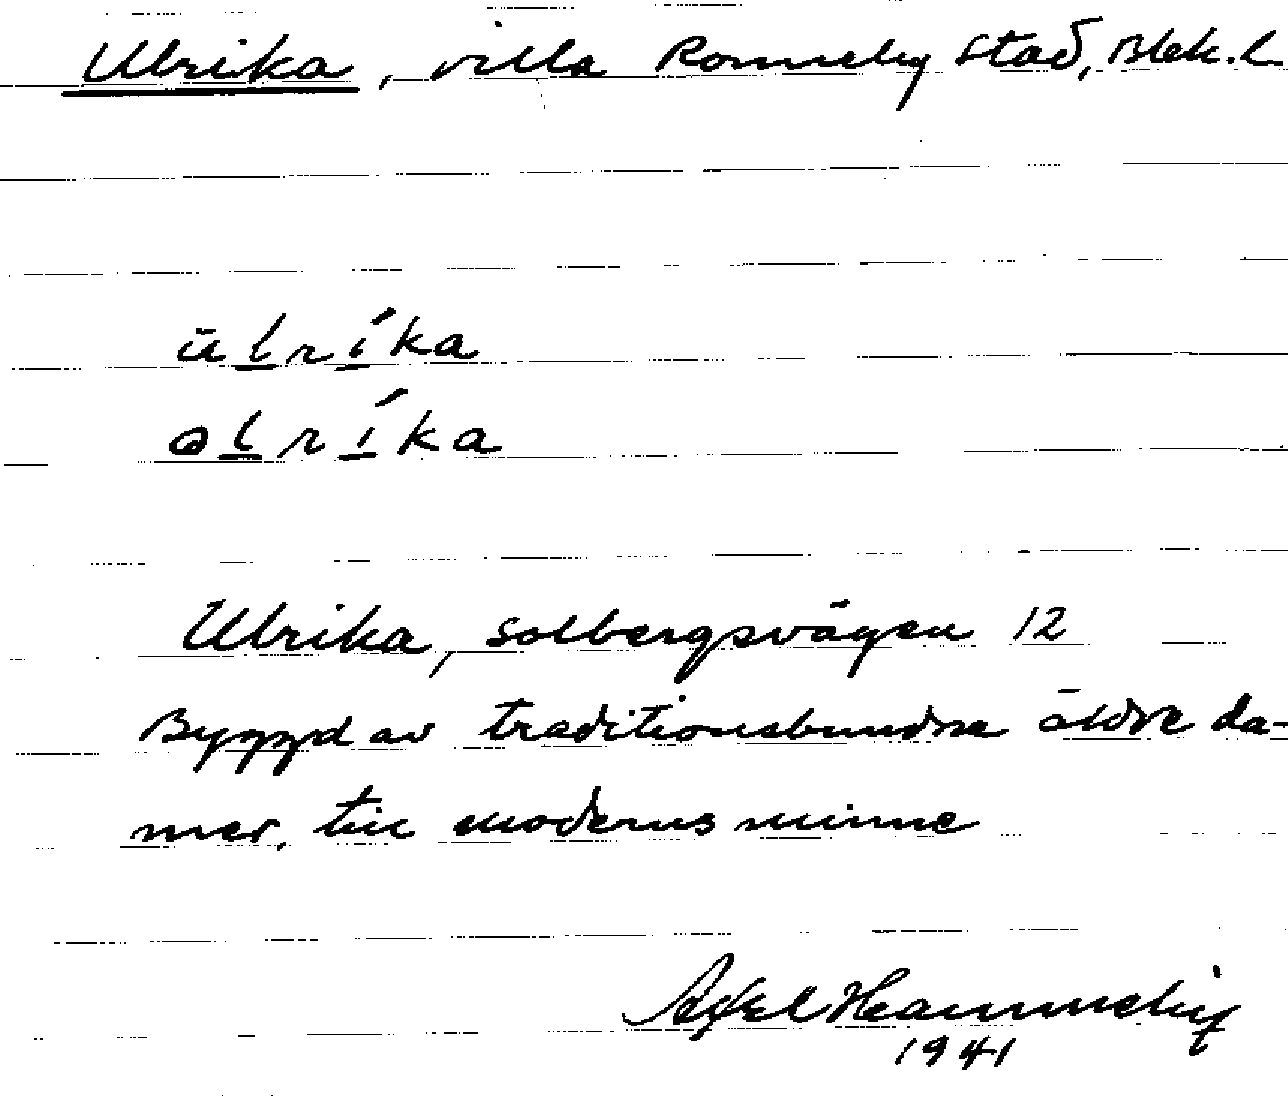 Ulrika, villa Ronneby stad, Blek. L
ūlríka
ɵlríka
Ulrika, Solbergsvägen 12
Byggd av traditionsbundna äldre da-
mer, till moderns minne
Axel
1941